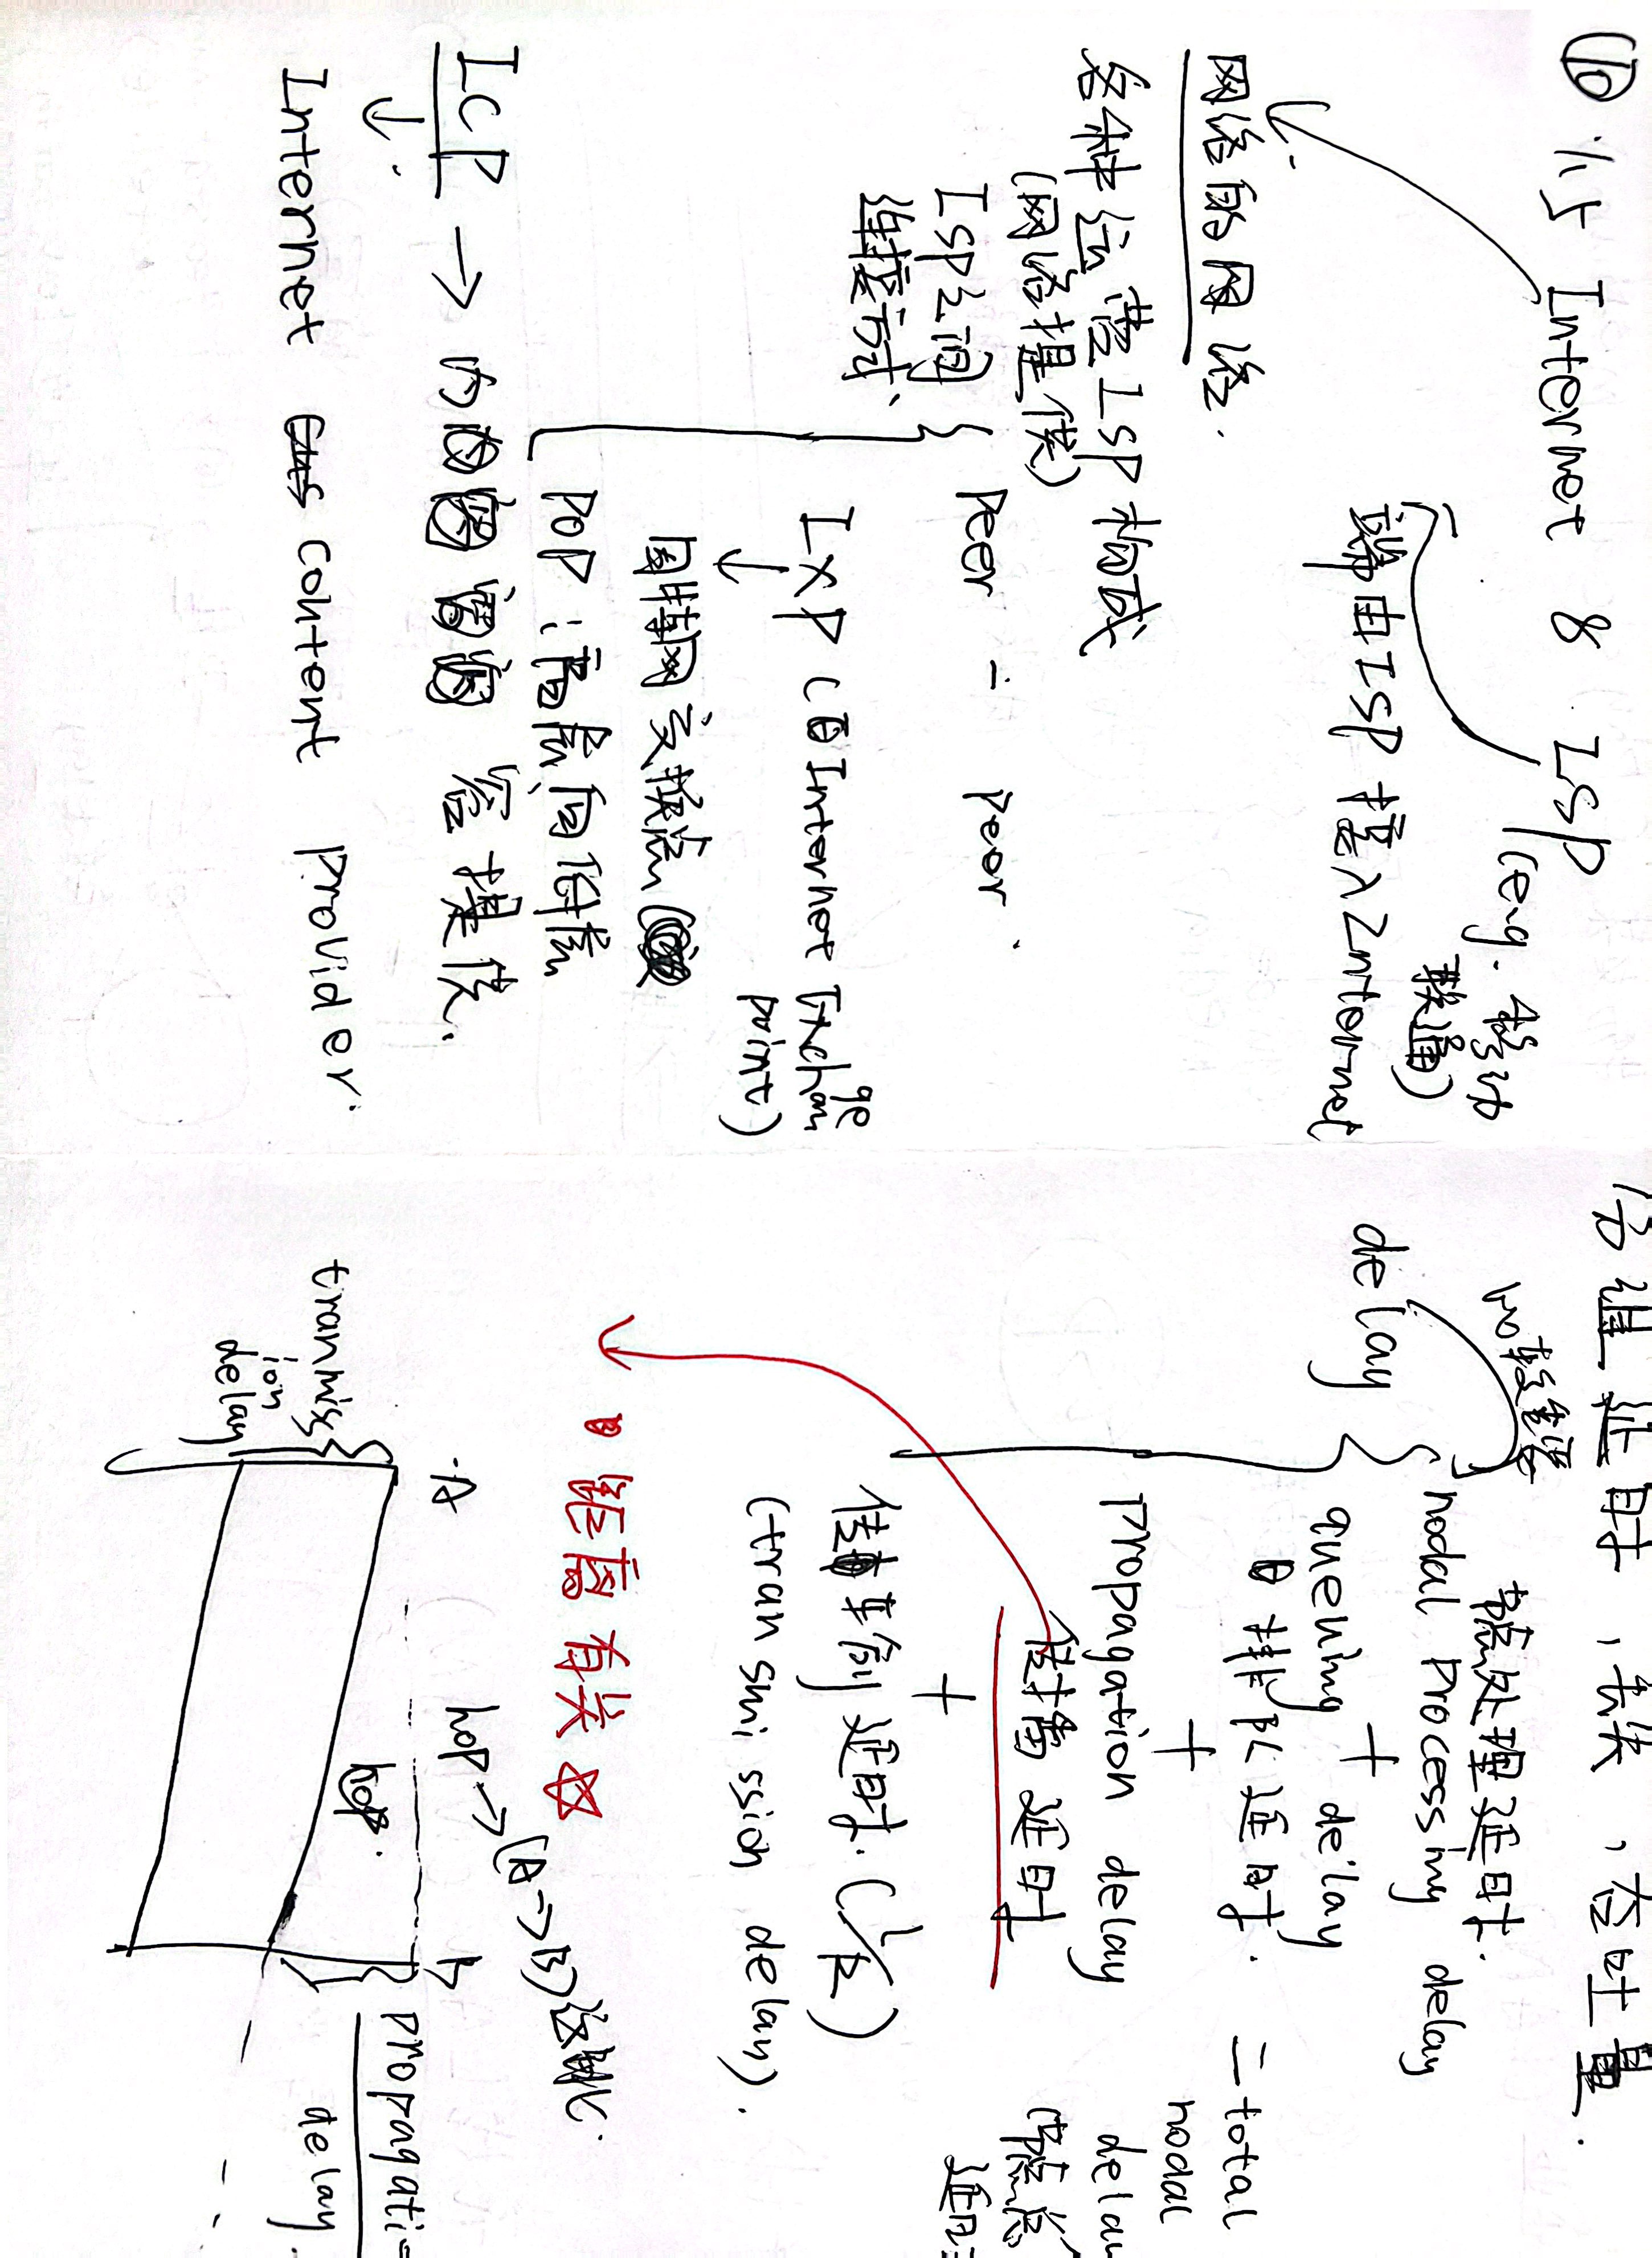 ⑩ 1.5 Internet & ISP (eg. 移动
联通)
端由ISP 接入Internet
网络的网络.
各种运营ISP构成
(网络提供)
ISP之间
连接方式
peer - peer.
IXP (Internet Exchange
point)
因特网交换点
POP:高层向低层
ICP → 内容提供.
↓
Internet content provider.
分组延时,丢失,吞吐量.
检查错
节点处理延时.
delay
nodal processing delay
+
queuing delay
排队延时.
+
propagation delay
传播延时
+
传输延时. (L/R)
(transmission delay).
= total
nodal
delay
(节点总
延时
距离有关 ☆
hop → (A→B)这跳.
A
B
hop.
transmiss
ion
delay
propagati-
delay.